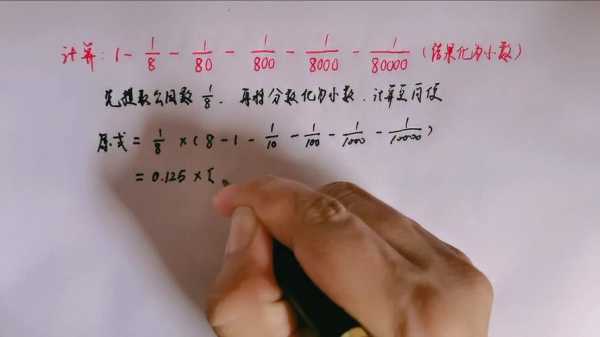 计算: 1 - 1/8 - 1/80 - 1/800 - 1/8000 - 1/80000 (结果化为小数)
先提取公因数 1/8, 再将分数化为小数, 计算更简便
原式 = 1/8 × ( 8 - 1 - 1/10 - 1/100 - 1/1000 - 1/10000 )
= 0.125 × [